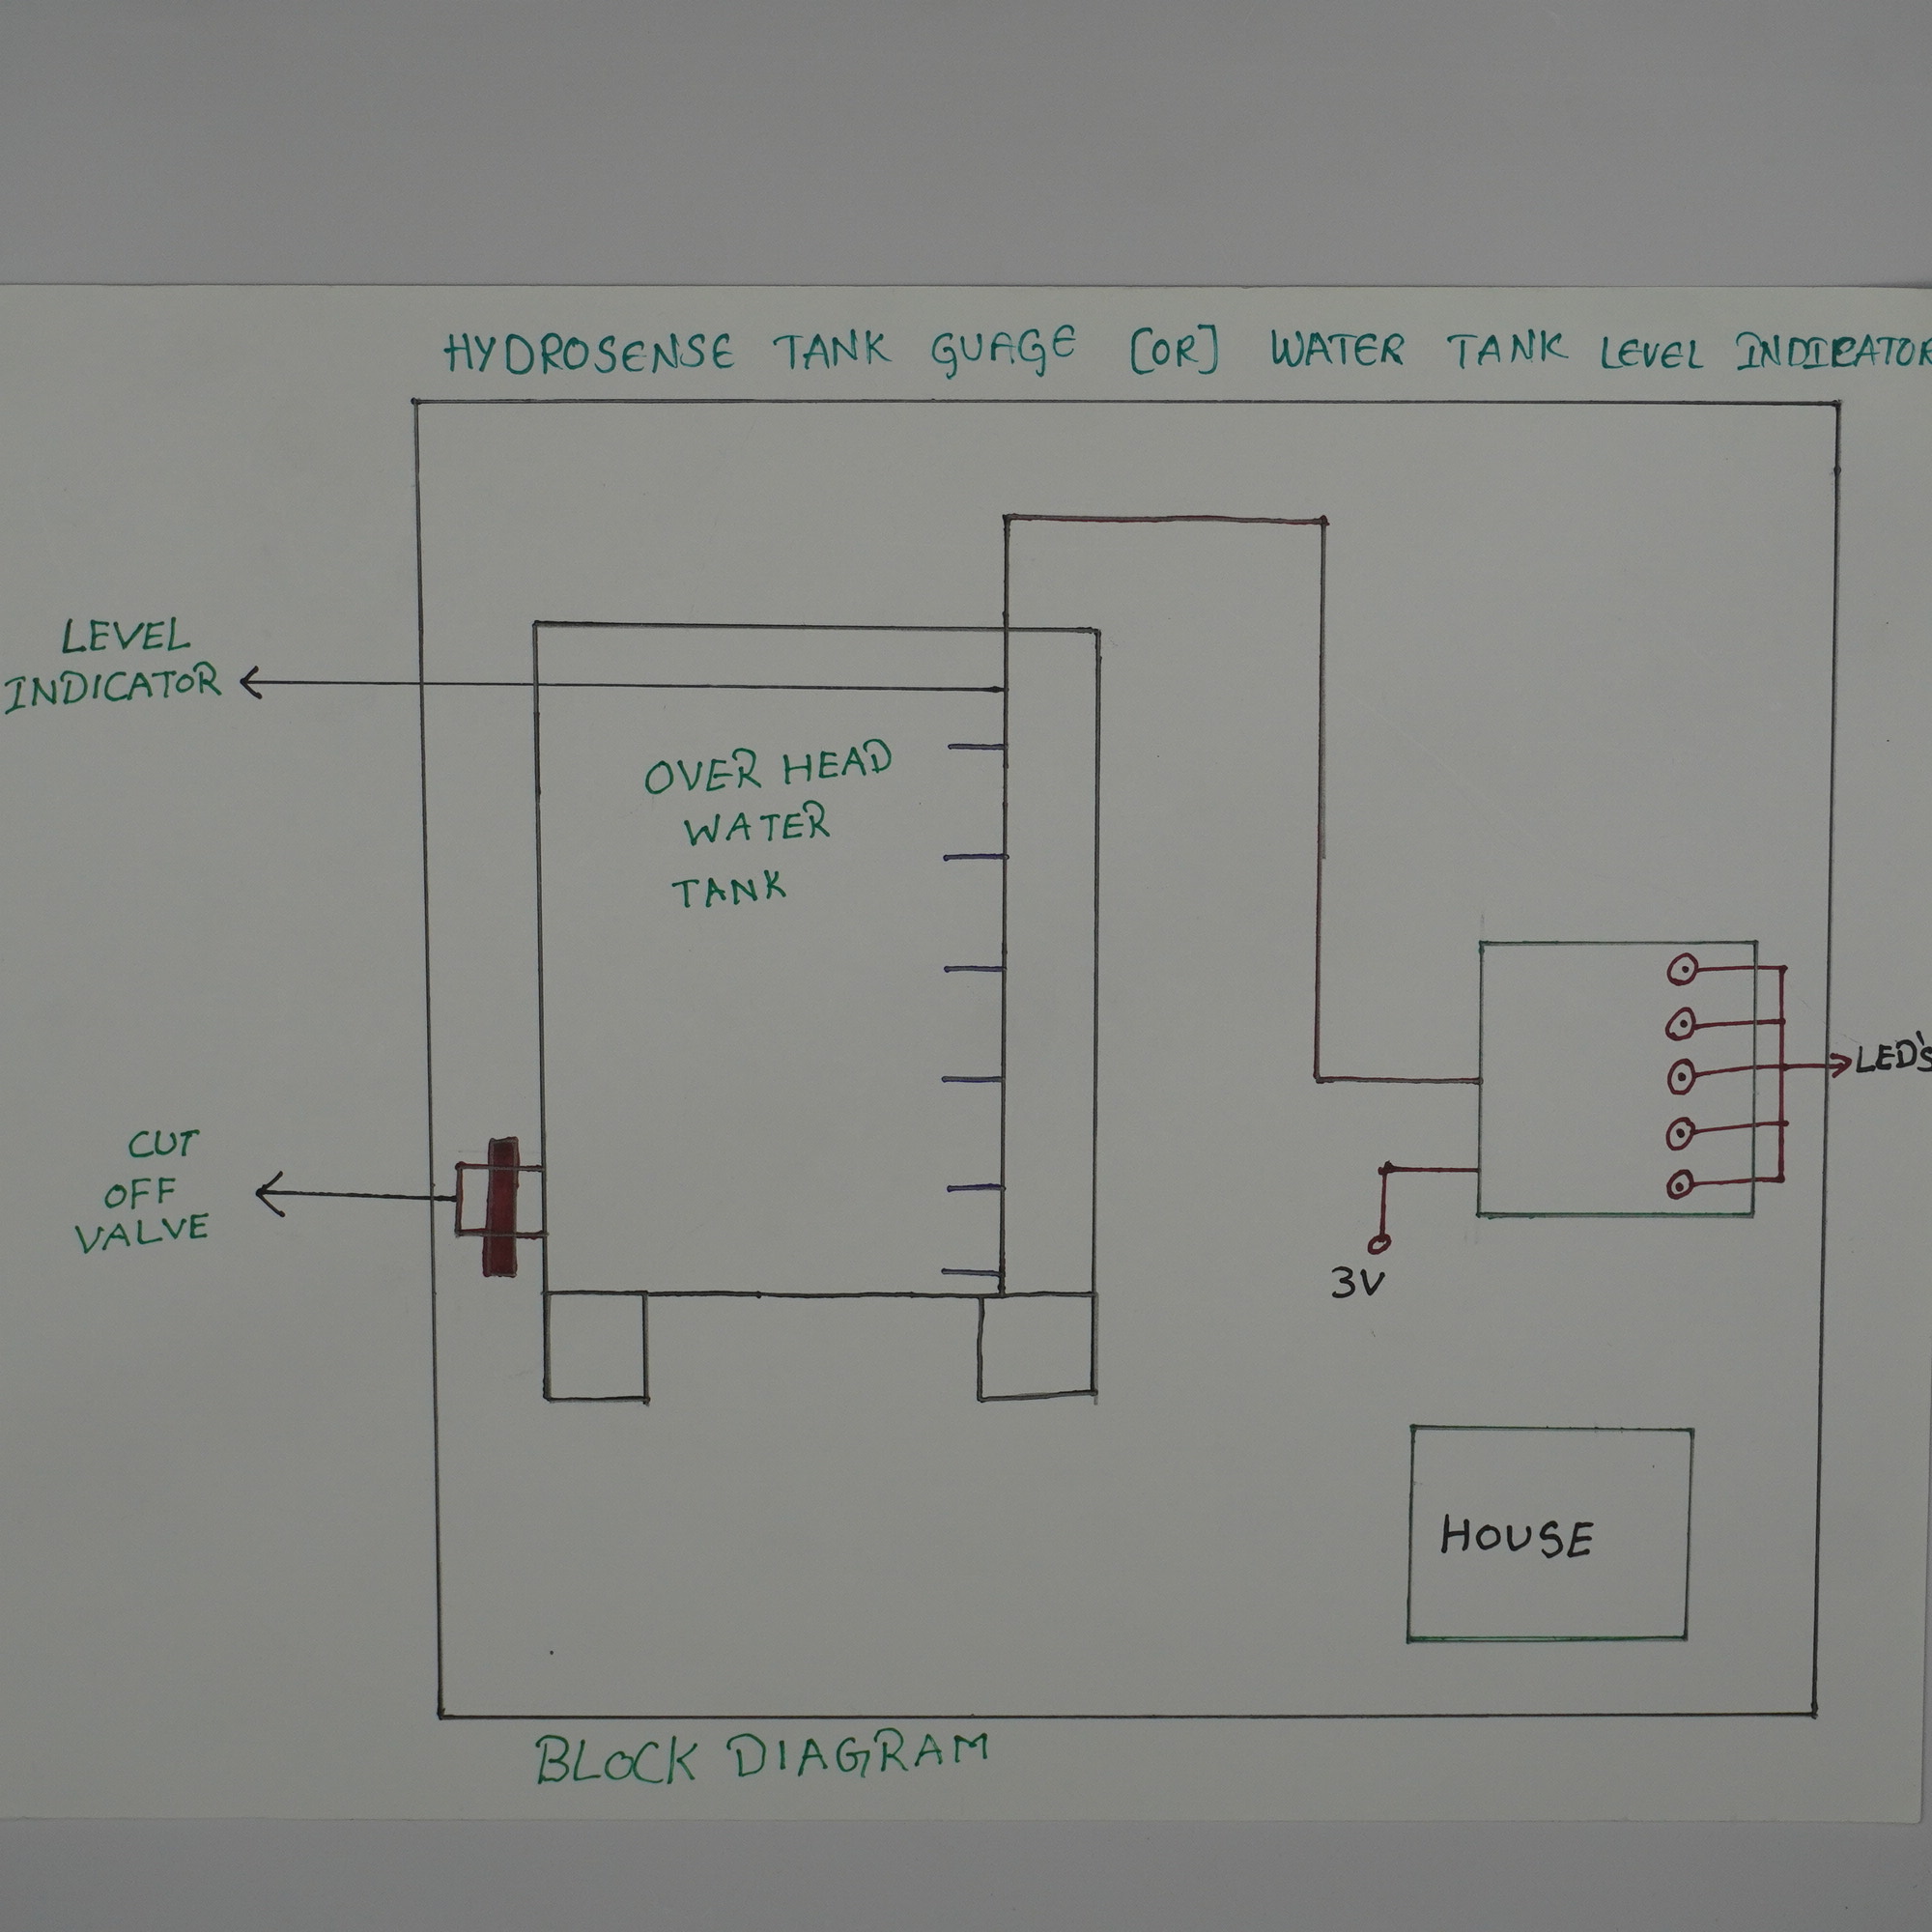 HYDROSENSE TANK GUAGE [OR] WATER TANK LEVEL INDICATOR
LEVEL
INDICATOR
OVER HEAD
WATER
TANK
LED's
CUT
OFF
VALVE
3V
HOUSE
BLOCK DIAGRAM